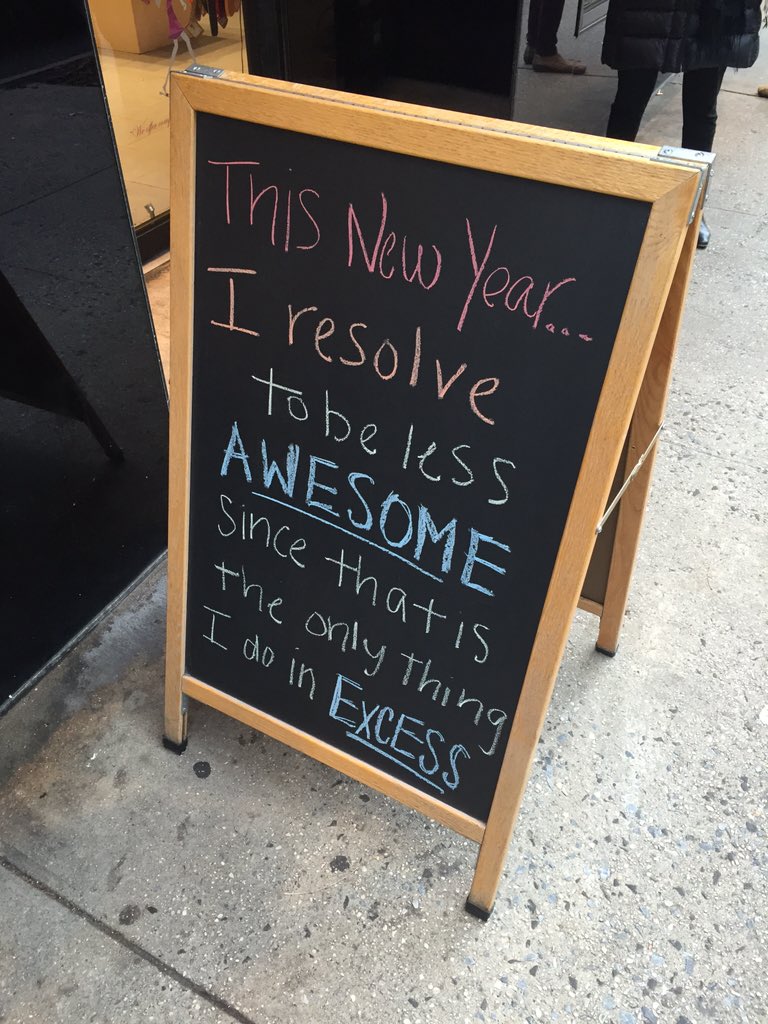 This New Year...
I resolve
to be less
AWESOME
since that is
the only thing
I do in EXCESS